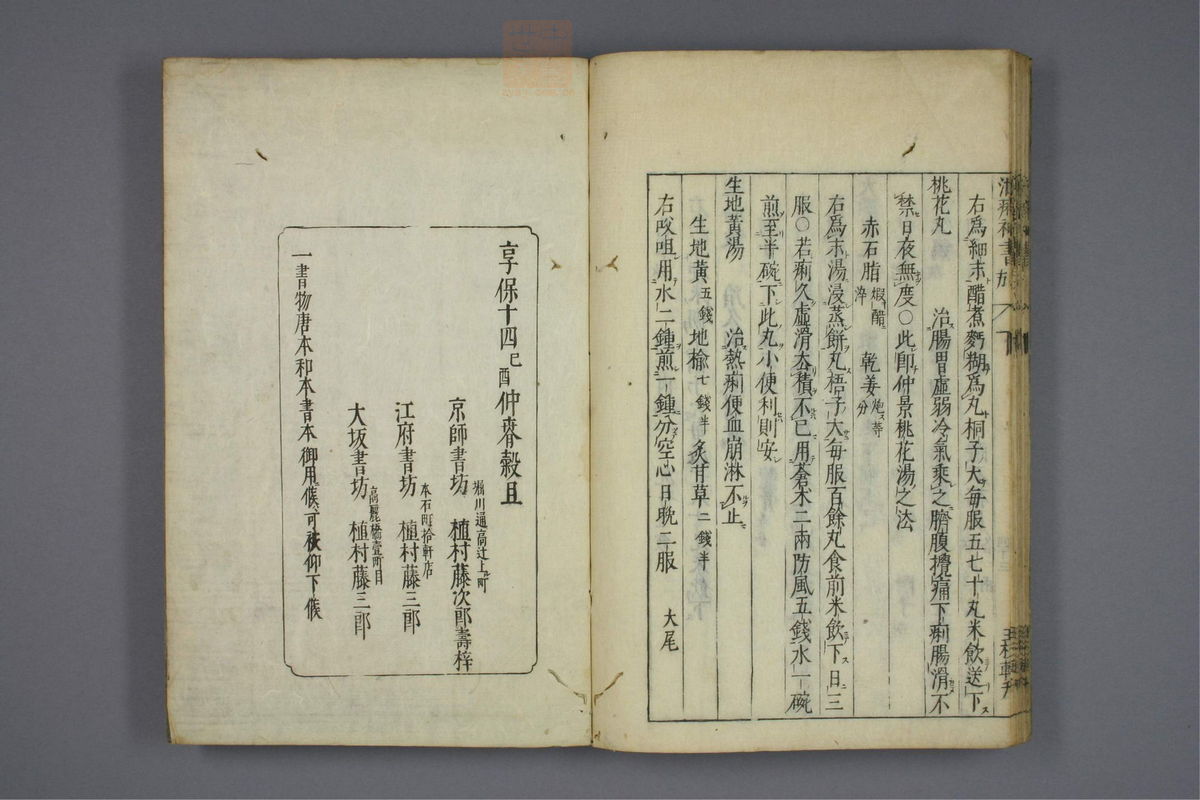 右爲細末醋煮麪糊爲丸桐子大每服五七十丸米飲送下
桃花丸　治腸胃虛弱冷氣乘之臍腹攪痛下痢腸滑不
禁日夜無度○此卽仲景桃花湯之法
赤石脂煆醋淬　乾姜炮等分
右爲末湯浸蒸餅丸梧子大每服百餘丸食前米飲下日三
服○若痢久虛滑去積不已用蒼朮二兩防風五錢水一碗
煎至半碗下此丸小便利則安
生地黃湯　治熱痢便血崩淋不止
生地黃五錢　地楡七錢半　炙甘草二錢半
右㕮咀用水二鍾煎一鍾分空心日晩二服　大尾
享保十四己酉仲春穀且
京師書坊　堀川通高辻上ル町　植村藤次郎壽梓
江府書坊　本石町拾軒店　植村藤三郎
大坂書坊　高麗橋壹町目　植村藤三郎
一書物唐本和本書本御用候ハヾ可被仰下候